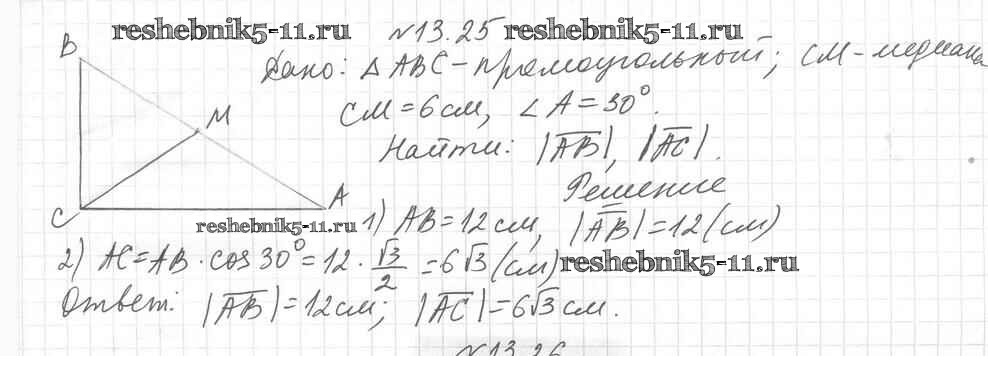 reshebnik5-11.ru №13.25 reshebnik5-11.ru
B
Дано: △ABC - прямоугольный; CM - медиана
M CM = 6 см, ∠A = 30°.
Найти: |AB|, |AC|.
Решение
C A
reshebnik5-11.ru 1) AB = 12 см, |AB| = 12 (см)
2) AC = AB · cos 30° = 12 · √3/2 = 6√3 (см) reshebnik5-11.ru
Ответ: |AB| = 12 см; |AC| = 6√3 см.
№13.26